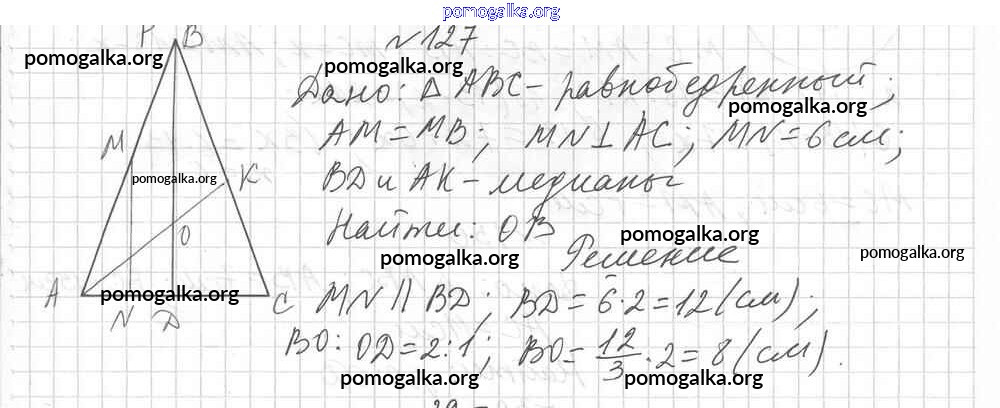 pomogalka.org
B
№127
pomogalka.org
pomogalka.org
Дано: Δ ABC - равнобедренный;
pomogalka.org
AM = MB; MN ⊥ AC; MN = 6 см;
M
pomogalka.org
K
BD и AK - медианы
O
Найти: OB
pomogalka.org
pomogalka.org
Решение
pomogalka.org
A
pomogalka.org
C
MN || BD; BD = 6·2 = 12 (см);
N D
BO : OD = 2:1; BO = 12/3 · 2 = 8 (см).
pomogalka.org
pomogalka.org